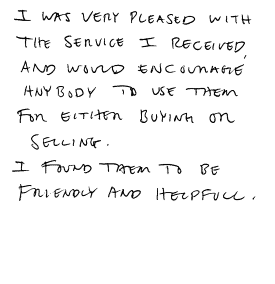 I WAS VERY PLEASED WITH
THE SERVICE I RECEIVED,
AND WOULD ENCOURAGE
ANYBODY TO USE THEM
FOR EITHER BUYING OR
SELLING.
I FOUND THEM TO BE
FRIENDLY AND HELPFULL.